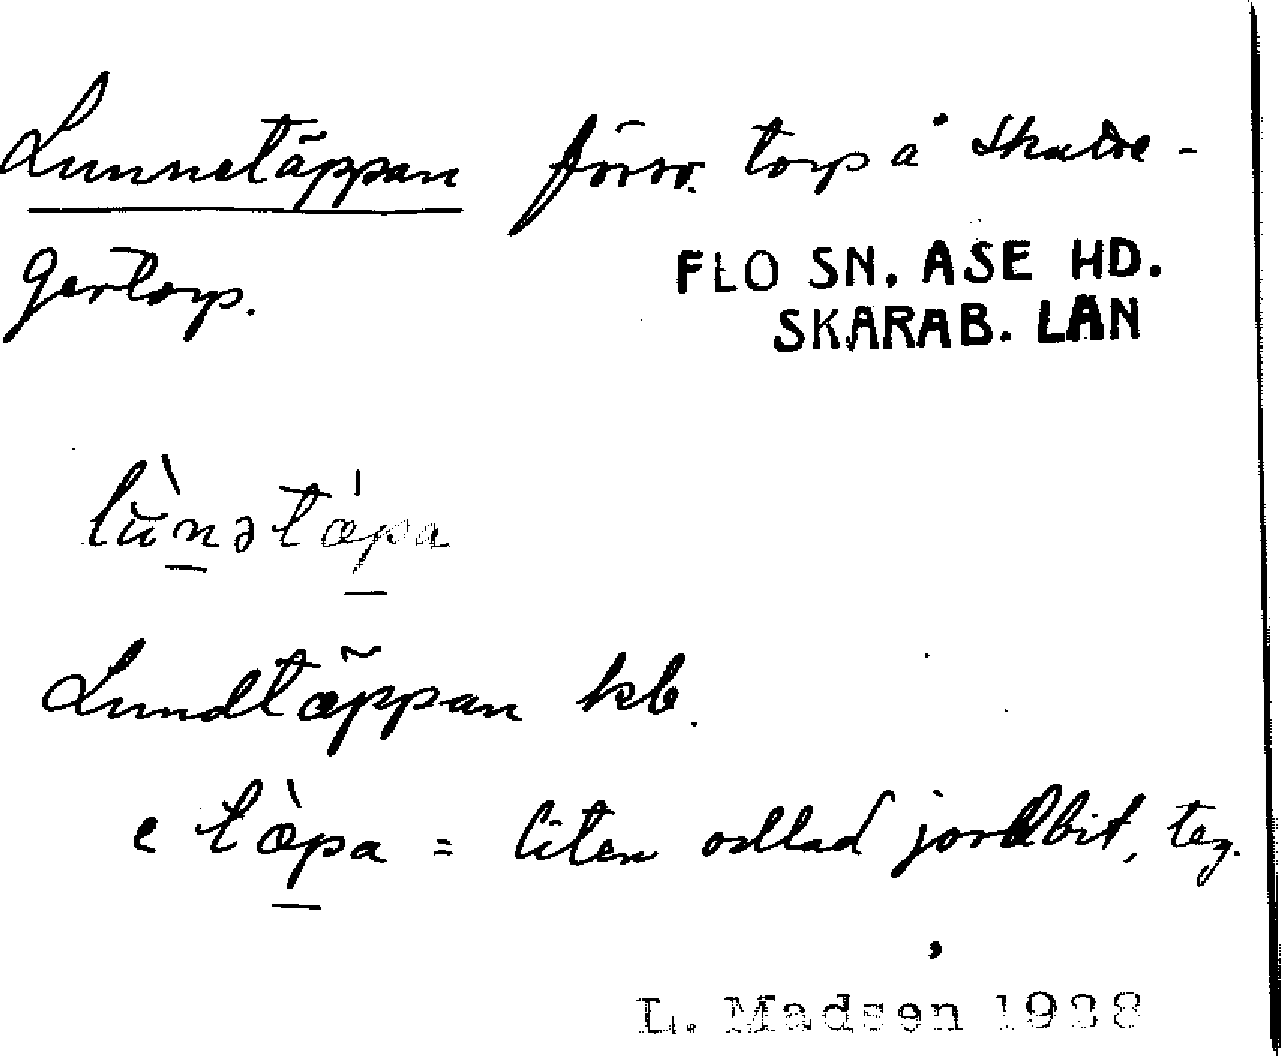 Lunnetäppan försv. torp å Skatte-
gertorp.
FLO SN. ÅSE HD.
SKARAB. LÄN
lùnətæpa
Lundtäppan kb.
e tæ̀pa = liten odlad jordbit, teg.
L. Madsen 1938